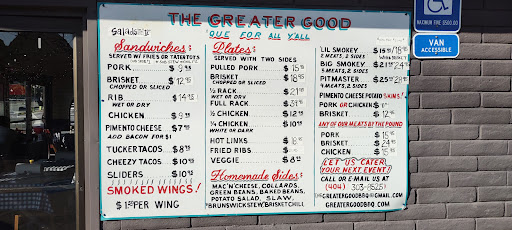 THE GREATER GOOD
'QUE FOR ALL Y'ALL
Salads $8
Sandwiches:
SERVED W/ FRIES OR TATERTOTS
PORK $9
BRISKET $12
CHOPPED OR SLICED
RIB $14
WET OR DRY
CHICKEN $9
PIMENTO CHEESE $7
ADD BACON FOR $1
TUCKER TACOS $8
CHEEZY TACOS $10
SLIDERS $10
SMOKED WINGS!
PER WING
Plates:
SERVED WITH TWO SIDES
PULLED PORK $15
BRISKET $18
CHOPPED OR SLICED
½ RACK $21
WET OR DRY
FULL RACK $31
½ CHICKEN $12
¼ CHICKEN $10
WHITE OR DARK
HOT LINKS $16
FRIED RIBS
VEGGIE $8
Homemade Sides:
MAC'N'CHEESE, COLLARDS,
GREEN BEANS, BAKED BEANS,
POTATO SALAD, SLAW,
BRUNSWICK STEW, BRISKET CHILI
LIL SMOKEY $16 /18
2 MEATS, 2 SIDES
BIG SMOKEY $21 24
3 MEATS, 2 SIDES
PITMASTER $25 28
4 MEATS, 2 SIDES
PIMENTO CHEESE POTATO SKINS!
PORK OR CHICKEN
BRISKET $12
ANY OF OUR MEATS BY THE POUND
PORK $15
BRISKET $24
CHICKEN $15
LET US CATER
YOUR NEXT EVENT!
CALL OR E-MAIL US AT
(404) 303-8525!
THEGREATERGOODBBQ@GMAIL.COM
GREATERGOODBBQ.COM
MAXIMUM FINE $500.00
VAN
ACCESSIBLE